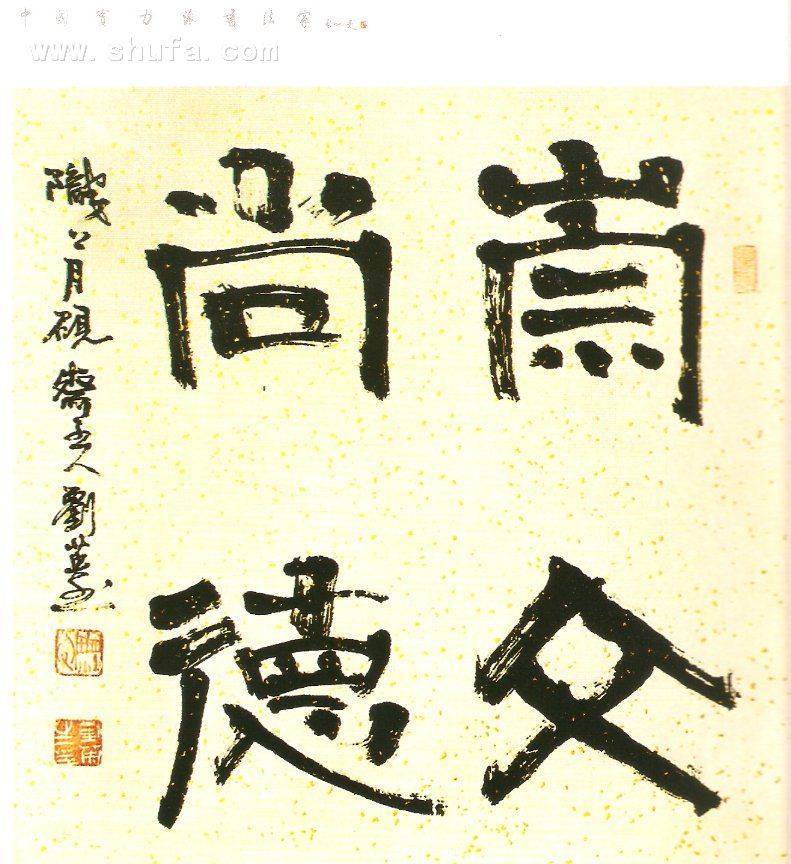 中国实力派书法家
www.shufa.com
崇文
尚德
月砚斋主人刘